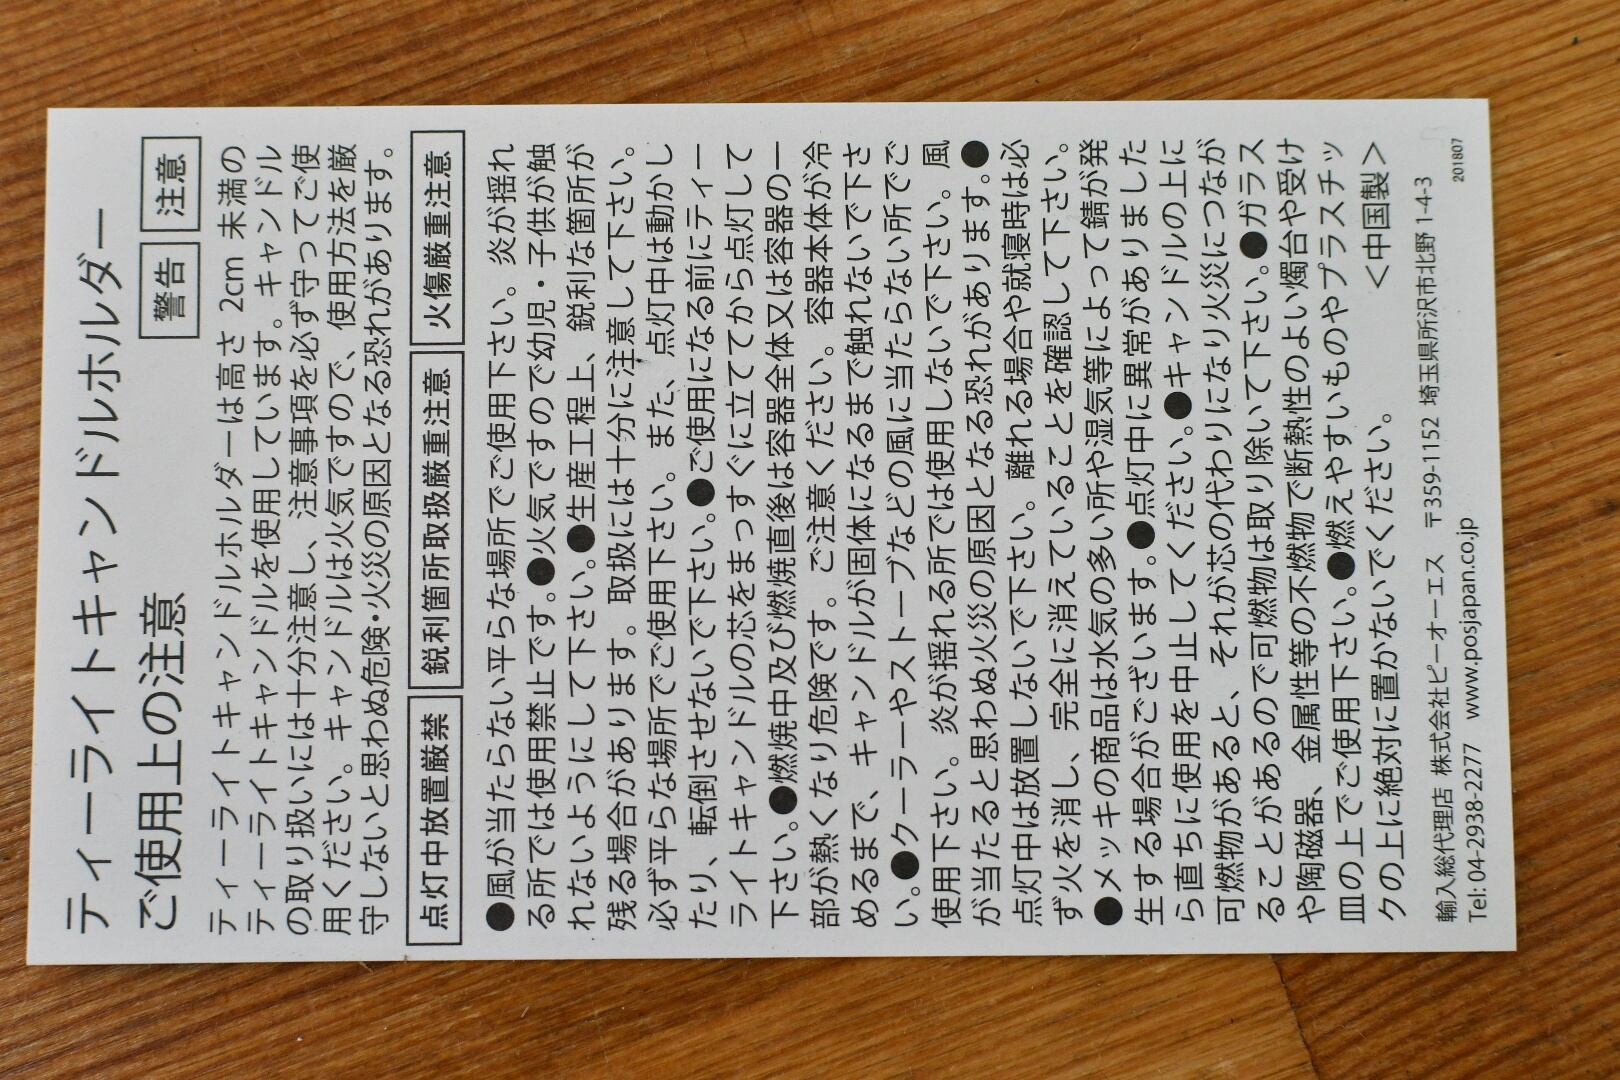 ティーライトキャンドルホルダー
ご使用上の注意
警告 注意
ティーライトキャンドルホルダーは高さ 2cm 未満の
ティーライトキャンドルを使用しています。キャンドル
の取り扱いには十分注意し、注意事項を必ず守ってご使
用ください。キャンドルは火気ですので、使用方法を厳
守しないと思わぬ危険・火災の原因となる恐れがあります。
点灯中放置厳禁 鋭利箇所取扱厳重注意 火傷厳重注意
●風が当たらない平らな場所でご使用下さい。炎が揺れ
る所では使用禁止です。●火気ですので幼児・子供が触
れないようにして下さい。●生産工程上、鋭利な箇所が
残る場合があります。取扱には十分に注意して下さい。
必ず平らな場所でご使用下さい。また、点灯中は動かし
たり、転倒させないで下さい。●ご使用になる前にティー
ライトキャンドルの芯をまっすぐに立ててから点灯して
下さい。●燃焼中及び燃焼直後は容器全体又は容器の一
部が熱くなり危険です。ご注意ください。容器本体が冷
めるまで、キャンドルが固体になるまで触れないで下さ
い。●クーラーやストーブなどの風に当たらない所でご
使用下さい。炎が揺れる所では使用しないで下さい。風
が当たると思わぬ火災の原因となる恐れがあります。●
点灯中は放置しないで下さい。離れる場合や就寝時は必
ず火を消し、完全に消えていることを確認して下さい。
●メッキの商品は水気の多い所や湿気等によって錆が発
生する場合がございます。●点灯中に異常がありました
ら直ちに使用を中止してください。●キャンドルの上に
可燃物があると、それが芯の代わりになり火災につなが
ることがあるので可燃物は取り除いて下さい。●ガラス
や陶磁器、金属性等の不燃物で断熱性のよい燭台や受け
皿の上でご使用下さい。●燃えやすいものやプラスチッ
クの上に絶対に置かないでください。
＜中国製＞
輸入総代理店 株式会社ピーオーエス 〒359-1152 埼玉県所沢市北野 1-4-3
Tel: 04-2938-2277 www.posjapan.co.jp
201807